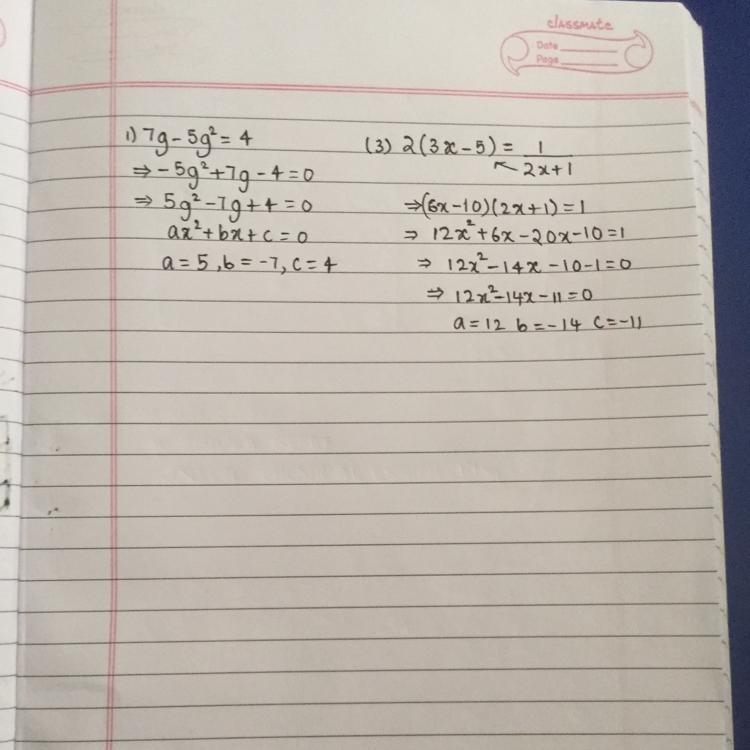 classmate
Date
Page
1) 7g - 5g² = 4
⇒ - 5g² + 7g - 4 = 0
⇒ 5g² - 7g + 4 = 0
ax² + bx + c = 0
a = 5, b = -7, c = 4
(3) 2(3x - 5) = 1/(2x+1)
⇒ (6x - 10)(2x + 1) = 1
⇒ 12x² + 6x - 20x - 10 = 1
⇒ 12x² - 14x - 10 - 1 = 0
⇒ 12x² - 14x - 11 = 0
a = 12 b = -14 c = -11